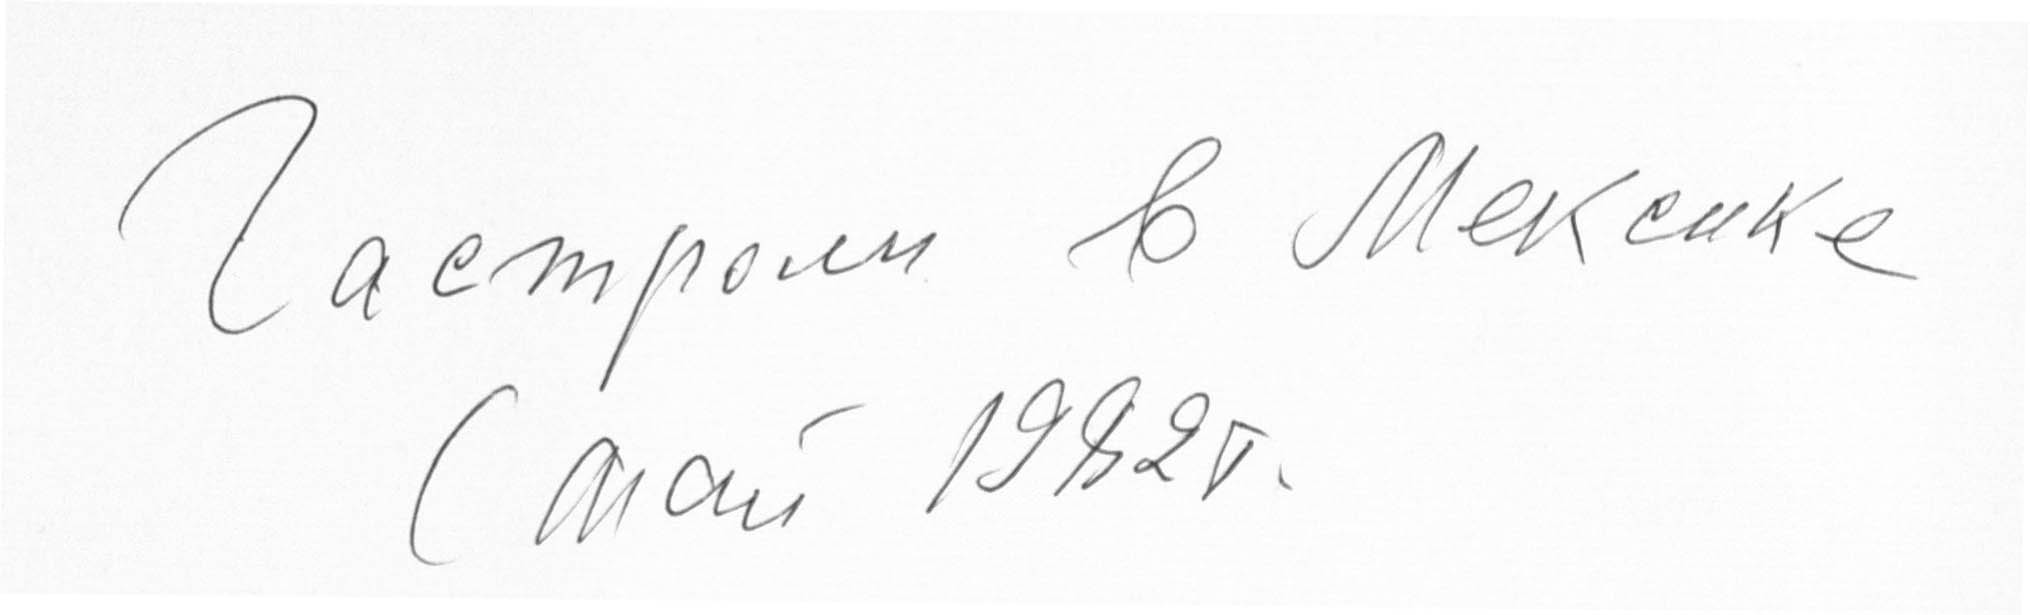 Гастроли в Мексике
(май 1982г.